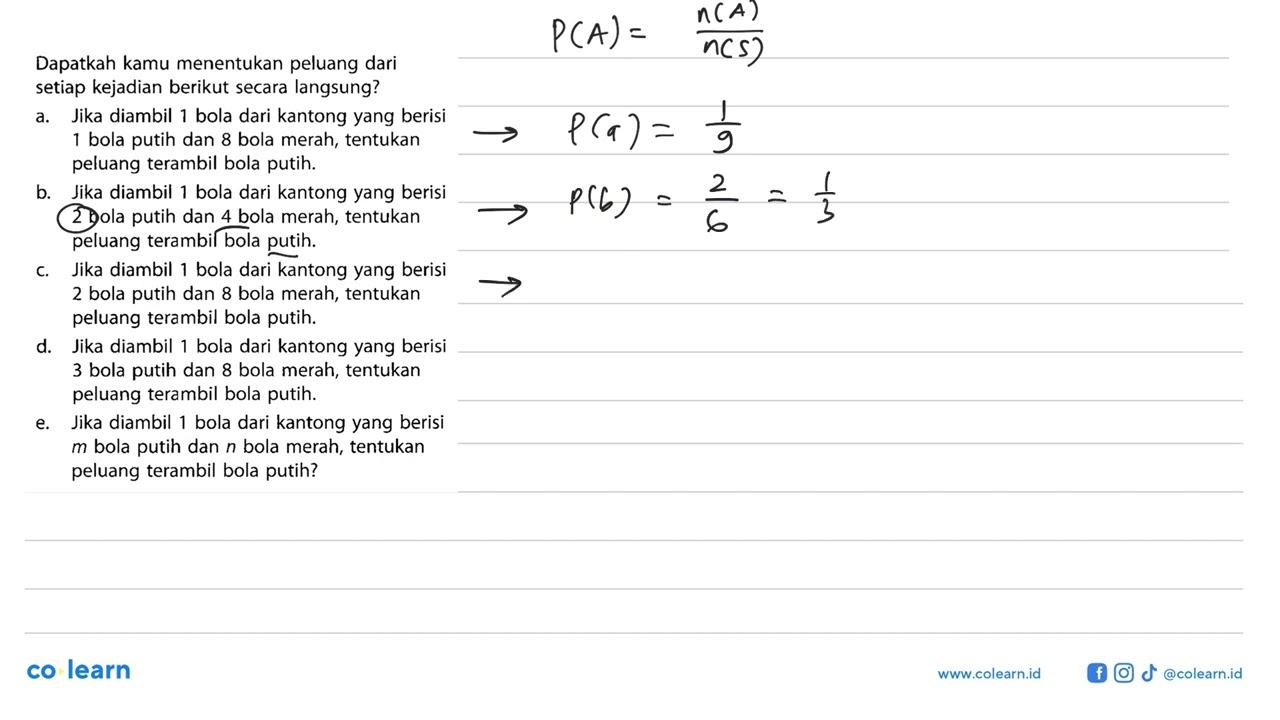 P(A) = n(A)/n(S)
Dapatkah kamu menentukan peluang dari
setiap kejadian berikut secara langsung?
a. Jika diambil 1 bola dari kantong yang berisi
1 bola putih dan 8 bola merah, tentukan
peluang terambil bola putih.
→ P(a) = 1/9
b. Jika diambil 1 bola dari kantong yang berisi
2 bola putih dan 4 bola merah, tentukan
peluang terambil bola putih.
→ P(b) = 2/6 = 1/3
c. Jika diambil 1 bola dari kantong yang berisi
2 bola putih dan 8 bola merah, tentukan
peluang terambil bola putih.
→
d. Jika diambil 1 bola dari kantong yang berisi
3 bola putih dan 8 bola merah, tentukan
peluang terambil bola putih.
e. Jika diambil 1 bola dari kantong yang berisi
m bola putih dan n bola merah, tentukan
peluang terambil bola putih?
co learn
www.colearn.id
@colearn.id